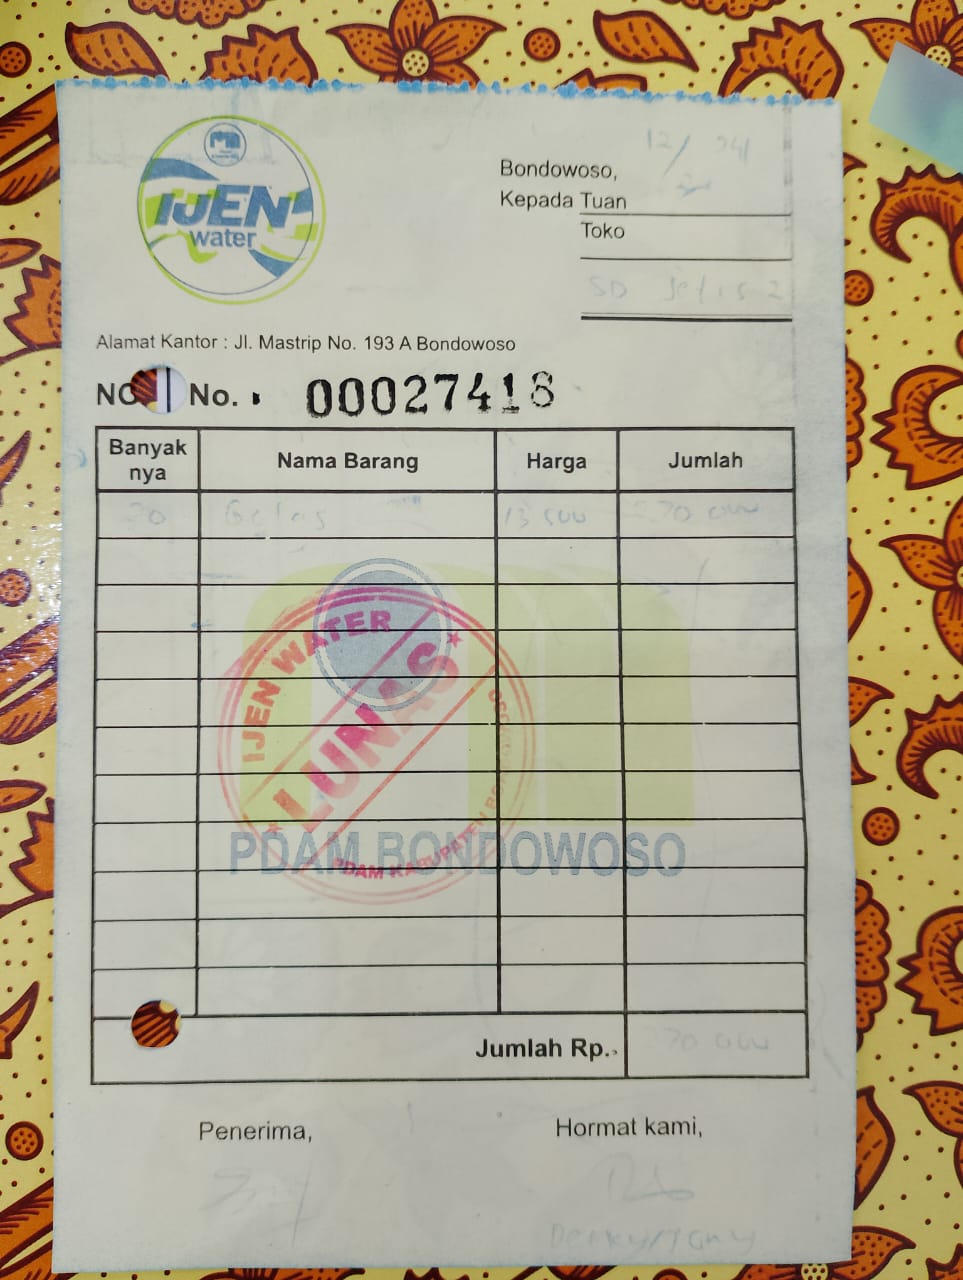 IJEN
water
Bondowoso, 12/
Kepada Tuan
Toko
SD Jetis 2
Alamat Kantor : Jl. Mastrip No. 193 A Bondowoso
No. 00027418
Banyak nya Nama Barang Harga Jumlah
20 Gelas 13 500 270 000
IJEN WATER
LUNAS
PDAM KABUPATEN BONDOWOSO
PDAM BONDOWOSO
Jumlah Rp. 270 000
Penerima, Hormat kami,